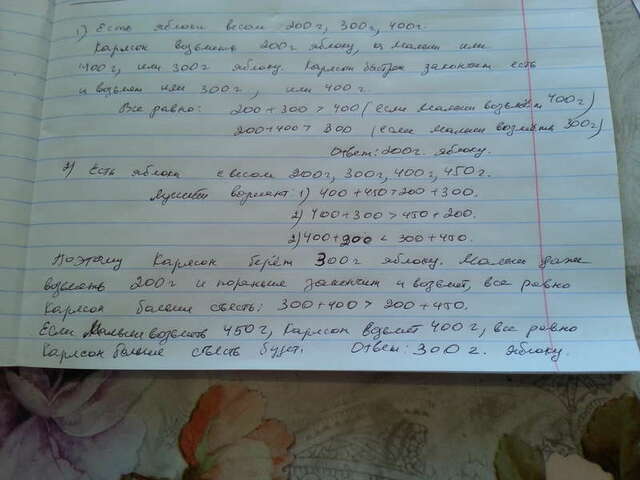 1) Есть яблоки весом 200г, 300г, 400г.
Карлсон возьметь 200г яблоку, а малыш или
400г, или 300г яблоку. Карлсон быстрее закончит есть
и возьмет или 300г, или 400г.
Все равно: 200+300 > 400 (если малыш возьмёт 400г)
200+400 > 300 (если малыш возьметь 300г)
Ответ: 200г. яблоку.
2) Есть яблока с весом 200г, 300г, 400г, 450г.
Лучший вариант: 1) 400+450 > 200+300.
2) 400+300 > 450+200.
3) 400+200 < 300+450.
Поэтому Карлсон берёт 300г яблоку. Малыш даже
возьметь 200г и пораньше закончит и возьмёт, все равно
Карлсон больше съесть: 300+400 > 200+450.
Если Малыш возьметь 450г, Карлсон возьмёт 400г, все равно
Карлсон больше съесть будет. Ответ: 300г. яблоку.